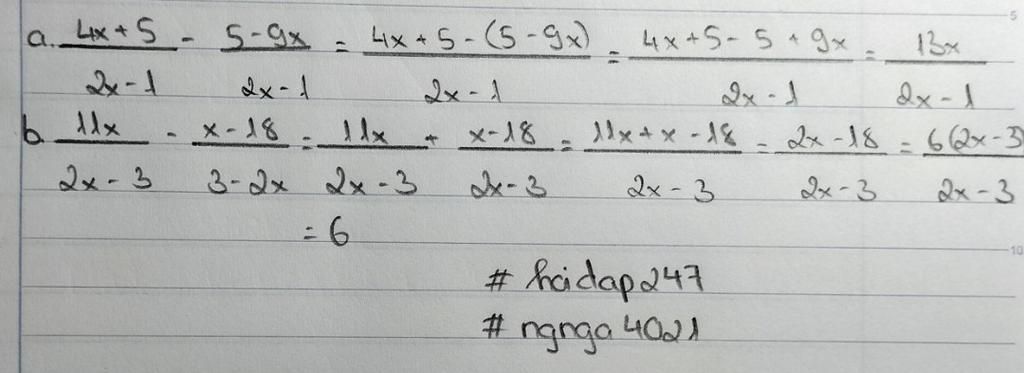 a. (4x + 5)/(2x - 1) - (5 - 9x)/(2x - 1) = (4x + 5 - (5 - 9x))/(2x - 1) = (4x + 5 - 5 + 9x)/(2x - 1) = 13x/(2x - 1)
b. 11x/(2x - 3) - (x - 18)/(3 - 2x) = 11x/(2x - 3) + (x - 18)/(2x - 3) = (11x + x - 18)/(2x - 3) = (2x - 18)/(2x - 3) = 6(2x - 3)/(2x - 3)
= 6
# hoidap247
# ngnga4021
5
10